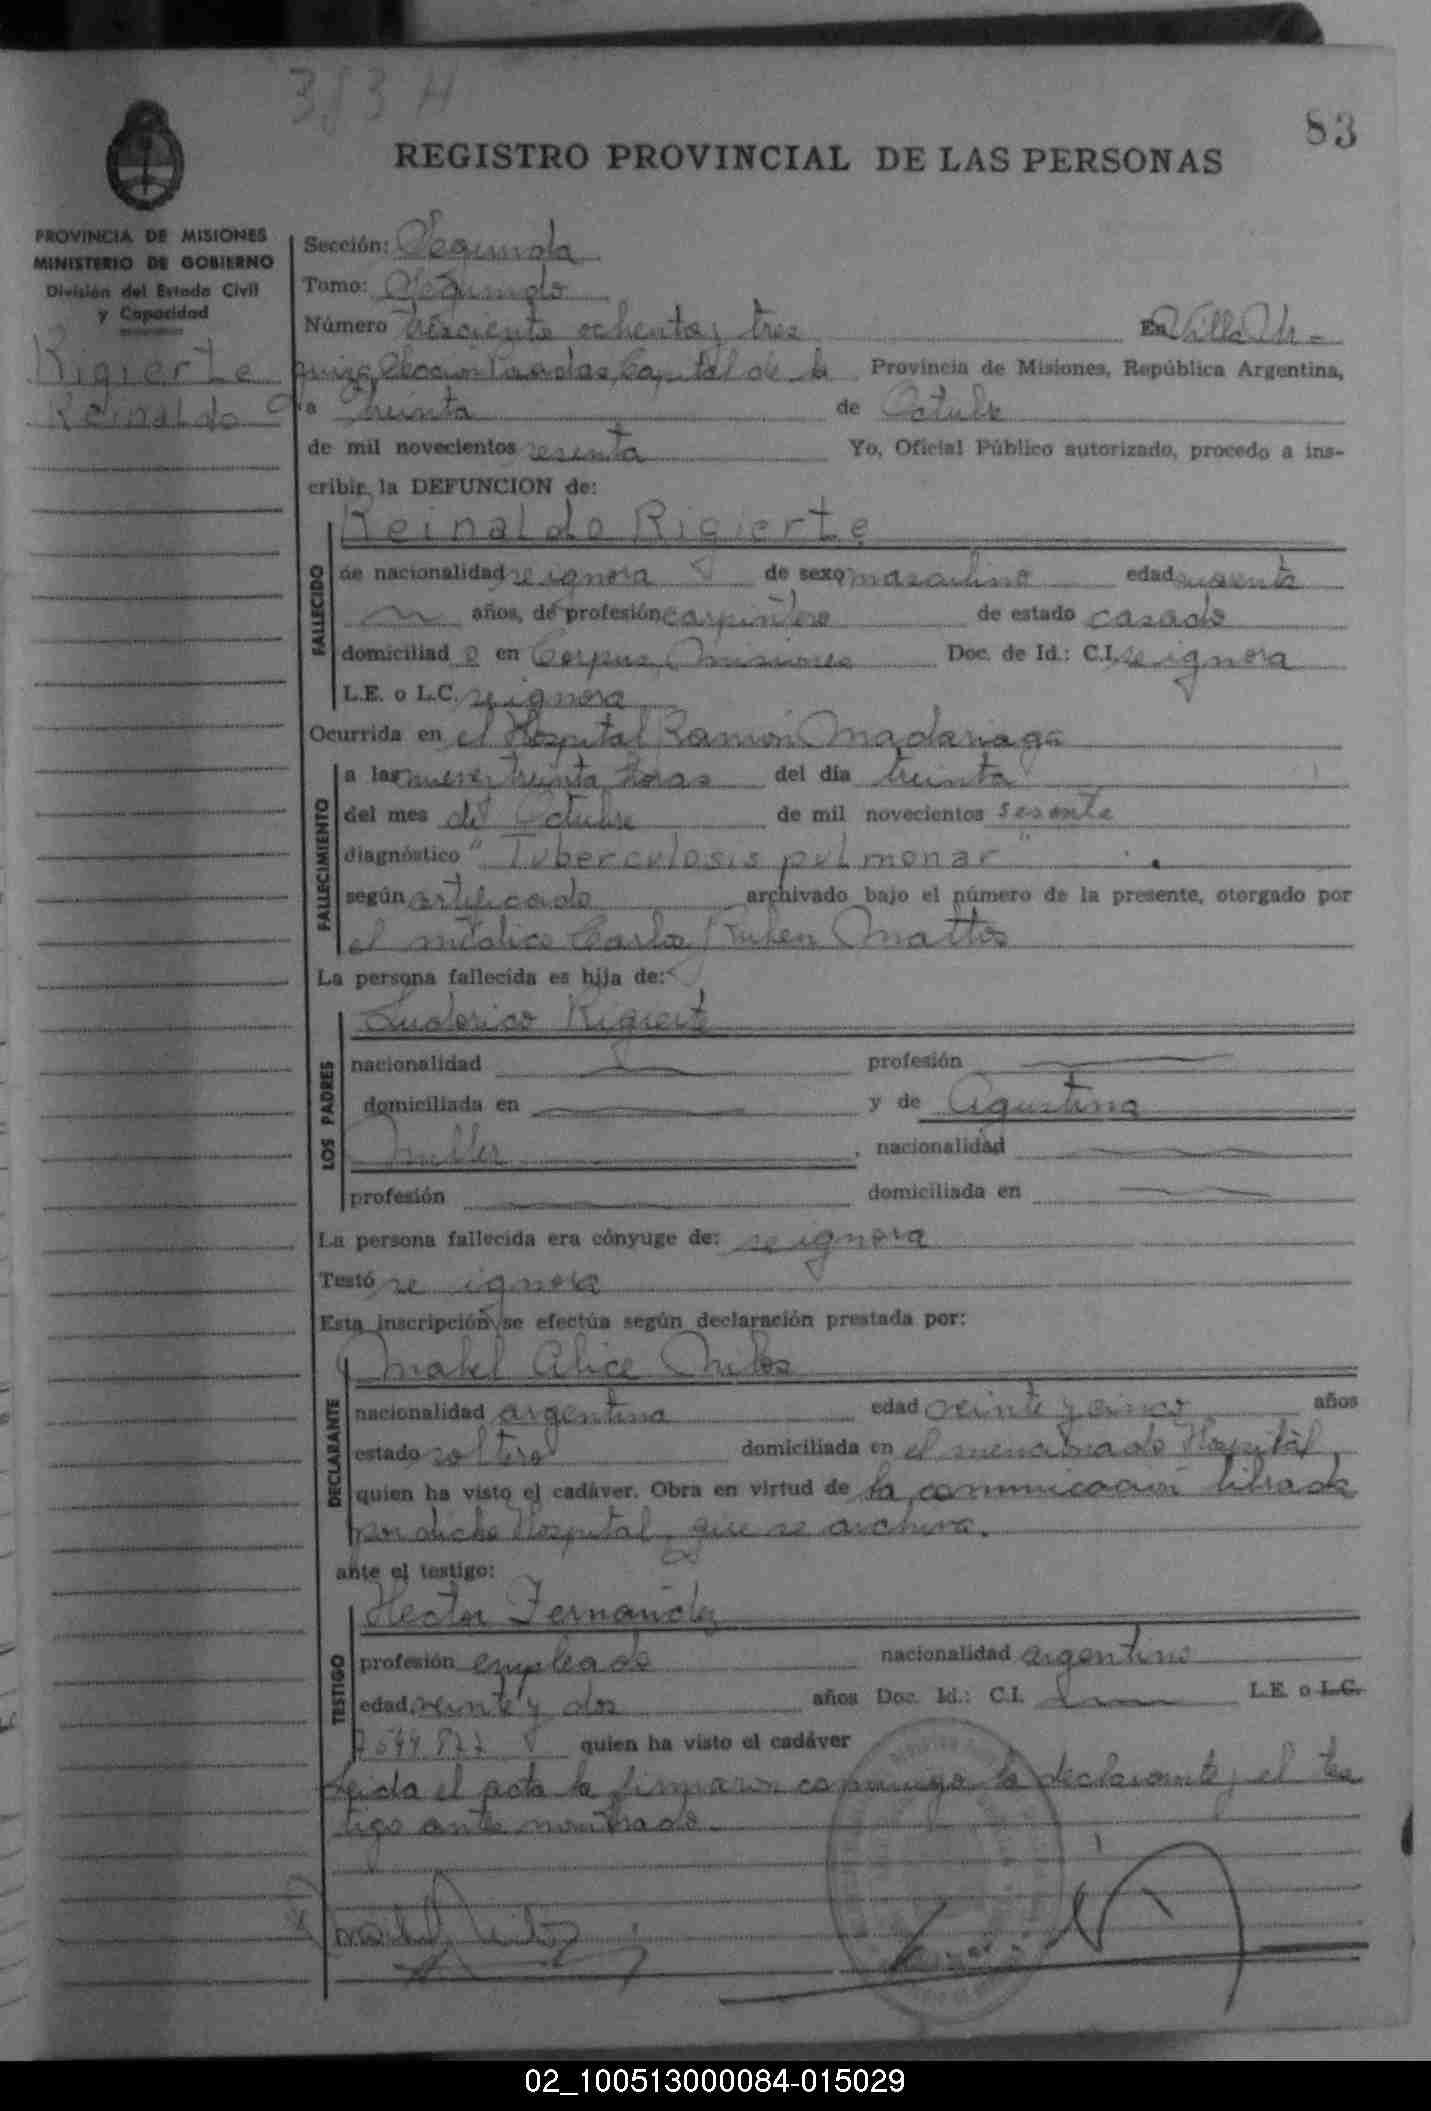 383 H
83
REGISTRO PROVINCIAL DE LAS PERSONAS
PROVINCIA DE MISIONES
MINISTERIO DE GOBIERNO
División del Estado Civil
y Capacidad
Rigierte
Reinaldo
Sección: Segunda
Tomo: Segundo
Número trescientos ochenta y tres En Villa Ur-
quiza, Sección Posadas, Capital de la Provincia de Misiones, República Argentina,
a treinta de Octubre
de mil novecientos sesenta Yo, Oficial Público autorizado, procedo a ins-
cribir la DEFUNCION de:
Reinaldo Rigierte
FALLECIDO
de nacionalidad se ignora de sexo masculino edad
años, de profesión carpintero de estado casado
domiciliad o en Corpus, Misiones Doc. de Id.: C.I. se ignora
L.E. o L.C. se ignora
Ocurrida en el Hospital Ramón Madariaga
FALLECIMIENTO
a las nueve treinta horas del día treinta
del mes de Octubre de mil novecientos sesenta
diagnóstico "Tuberculosis pulmonar"
según certificado archivado bajo el número de la presente, otorgado por
el médico Carlos Ruben Mattos
La persona fallecida es hija de:
LOS PADRES
Ludovico Rigierte
nacionalidad profesión
domiciliada en y de Agustina
Muller, nacionalidad
profesión domiciliada en
La persona fallecida era cónyuge de: se ignora
Testó se ignora
Esta inscripción se efectúa según declaración prestada por:
DECLARANTE
Mabel Alice
nacionalidad argentina edad veinte y cinco años
estado soltera domiciliada en el mencionado Hospital,
quien ha visto el cadáver. Obra en virtud de la comunicación librada
por dicho Hospital, que se archiva.
ante el testigo:
TESTIGO
Hector Fernandez
profesión empleado nacionalidad argentino
edad veinte y dos años Doc. Id.: C.I. L.E. o L.C.
quien ha visto el cadáver
Leida el acta la firmaron conmigo la declarante y el tes
tigo antes nombrado.
02_100513000084-015029